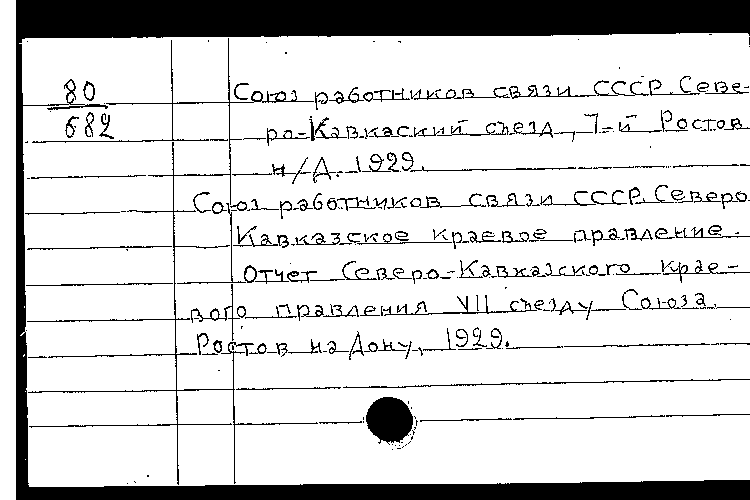 80
682
Союз работников связи СССР. Севе-
ро-Кавкаский съезд, 7-й Ростов
н/Д. 1929.
Союз работников связи СССР. Северо
Кавказское краевое правление.
Отчет Северо-Кавказского крае-
вого правления VII съезду Союза.
Ростов на Дону, 1929.